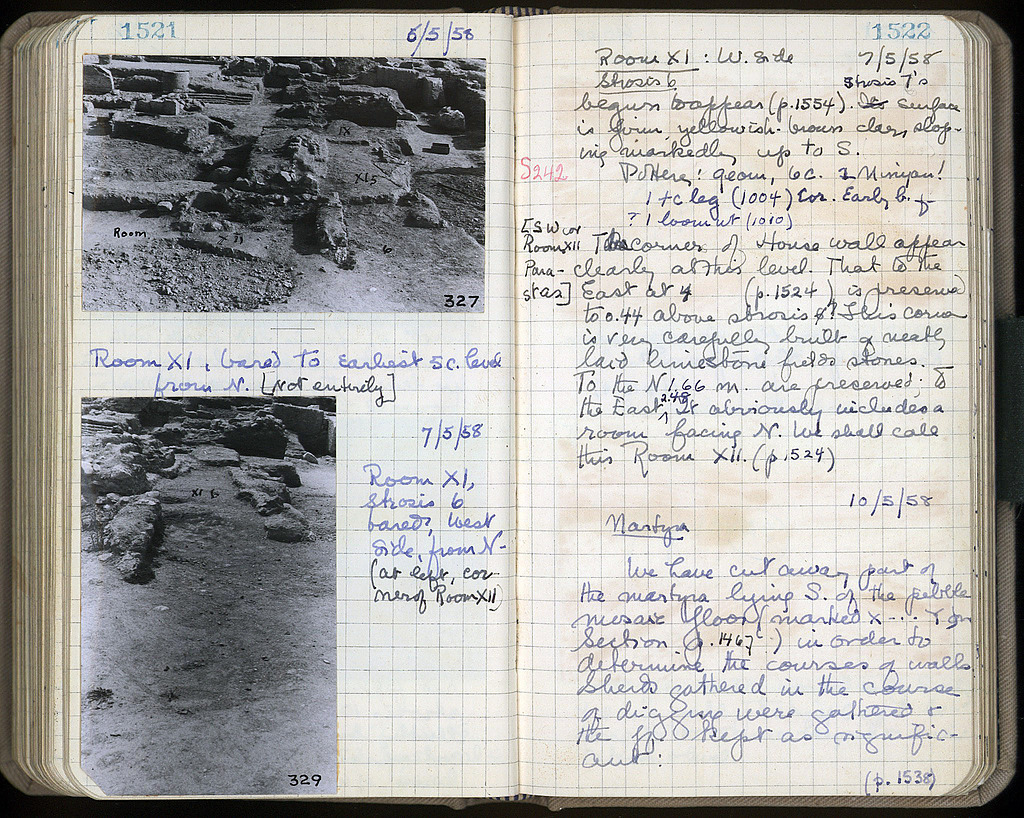 1521
6/5/58
IX
XI 5
Room
XII
6
327
Room XI, bared to earliest 5c. level
from N. [Not entirely]
7/5/58
XI 6
Room XI,
Strosis 6
bared, West
side, from N-
(at left, cor-
ner of Room XII)
329
1522
Room XI : W. Side 7/5/58
Strosis 6 Strosis 7's
begins to appear (p.1554). surface
is firm, yellowish-brown clay, slop-
ing markedly up to S.
S242
Pottery: geom, 6c. 1 Minyan!
1 tc leg (1004) Cor. Early b.
? 1 loomwt (1010)
[SW cor
Room XII
Para-
stas]
The corner of House wall appear
clearly at this level. That to the
East at 4 (p.1524) is preserved
to 0.44 above strosis 6? This corner
is very carefully built of neatly
laid limestone fields stones.
To the N 1.66 m. are preserved; to
the East, 2.48 It obviously includes a
room facing N. We shall call
this Room XII. (p.1524)
10/5/58
Martyra
We have cut away part of
the martyra lying S. of the pebble
mosaic floor (marked X --- Y on
Section p.1467) in order to
determine the courses of walls.
Sherds gathered in the course
of digging were gathered &
the ff. kept as signific-
ant:
(p.1538)